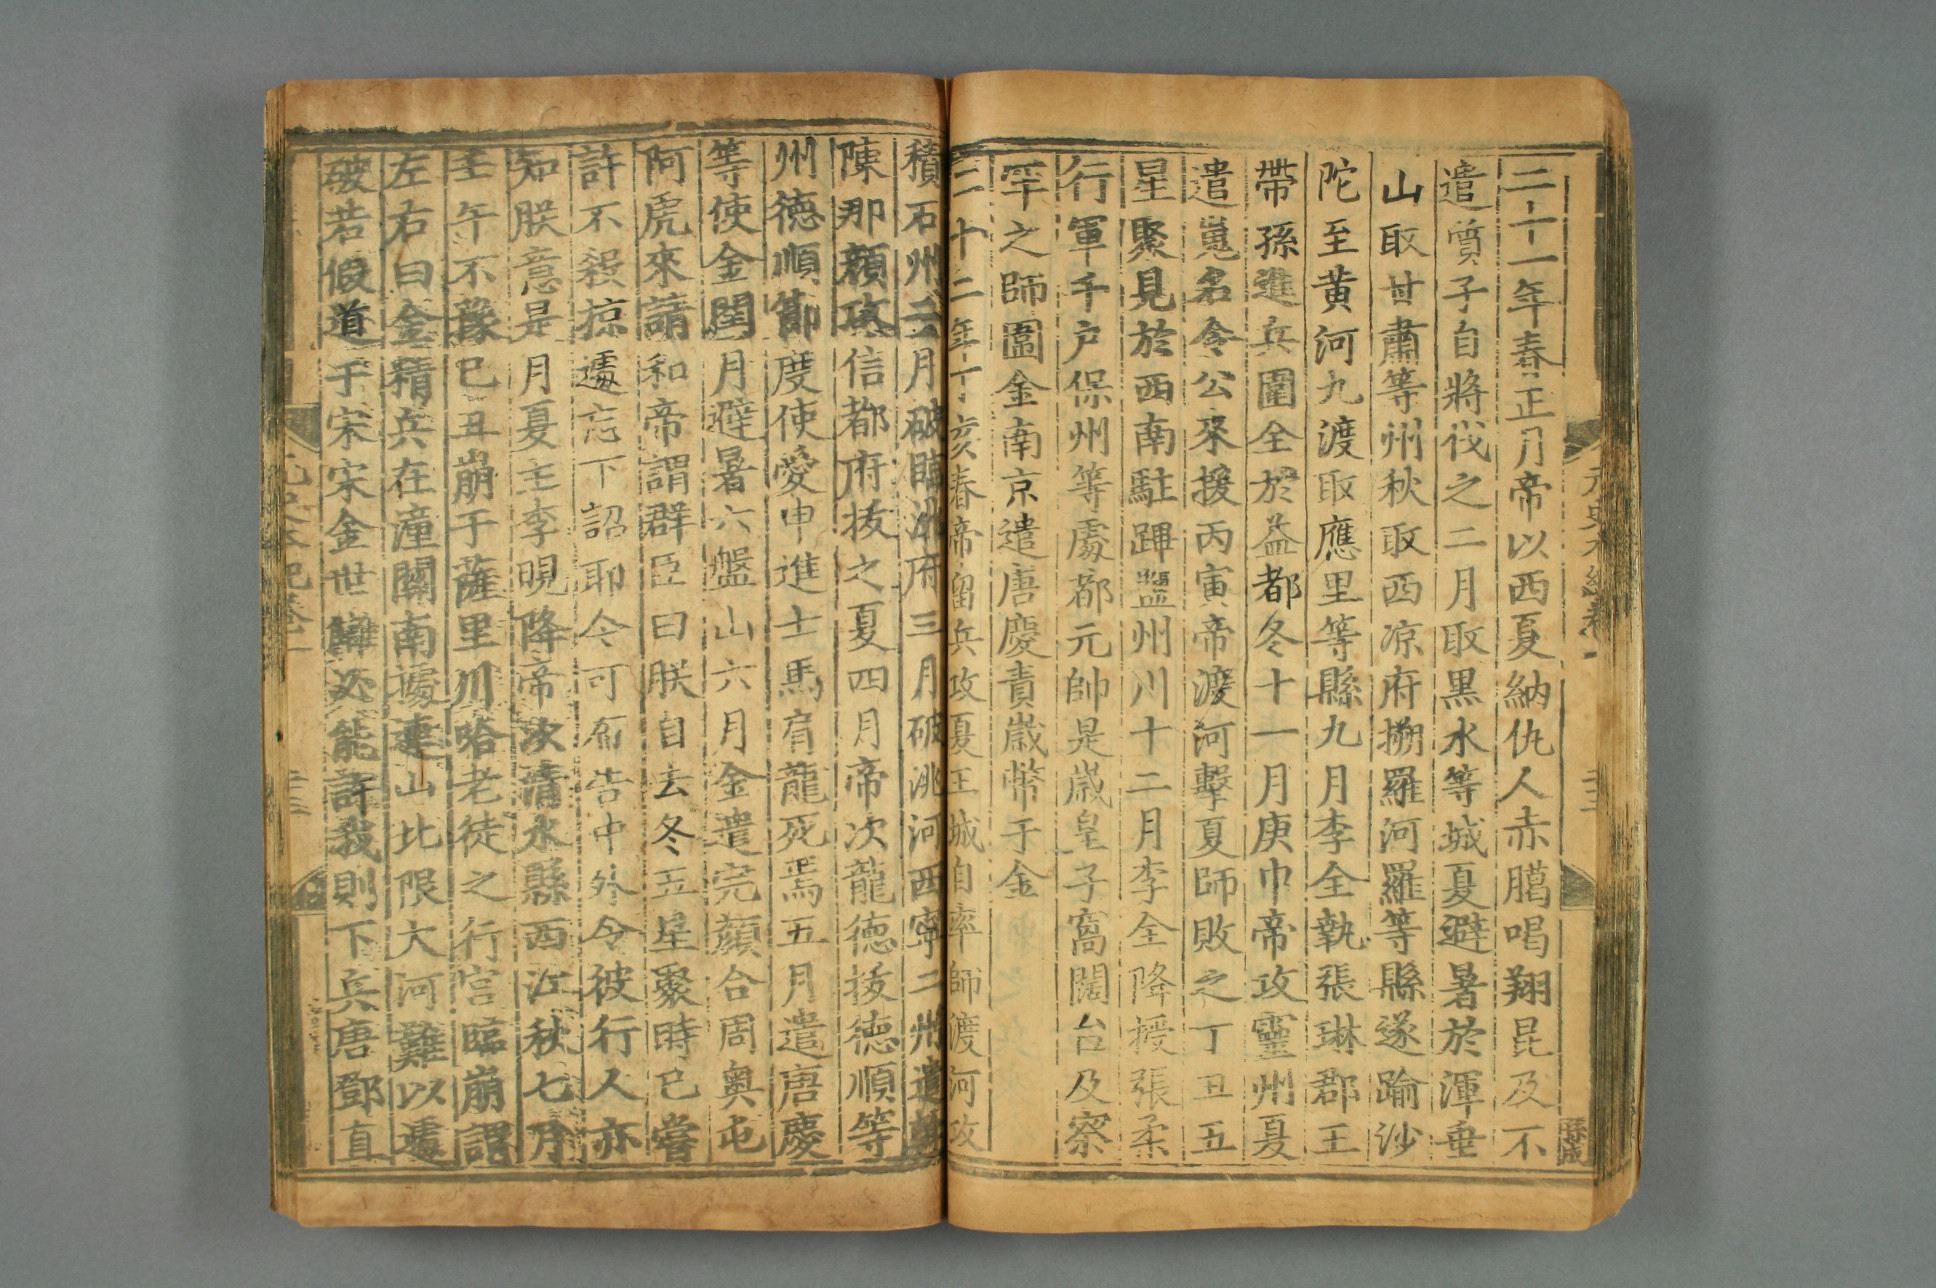 元史本紀卷一
二十一年春正月帝以西夏納仇人赤臈喝翔昆及不
遣質子自將伐之二月取黑水等城夏避暑於渾垂
山取甘肅等州秋取西涼府搠羅河羅等縣遂踰沙
陀至黃河九渡取應里等縣九月李全執張琳郡王
帶孫進兵圍全於益都冬十一月庚申帝攻靈州夏
遣嵬名令公來援丙寅帝渡河擊夏師敗之丁丑五
星聚見於西南駐蹕鹽州川十二月李全降授張柔
行軍千戶保州等處都元帥是歲皇子窩闊台及察
罕之師圍金南京遣唐慶責歲幣于金
二十二年丁亥春帝留兵攻夏王城自率師渡河攻
積石州二月破臨洮府三月破洮河西寧二州遣斡
陳那顏攻信都府拔之夏四月帝次龍德拔德順等
州德順節度使愛申進士馬肩龍死焉五月遣唐慶
等使金閏月避暑六盤山六月金遣完顏合周奧屯
阿虎來請和帝謂群臣曰朕自去冬五星聚時已嘗
許不殺掠遽忘下詔耶今可布告中外令彼行人亦
知朕意是月夏主李晛降帝次清水縣西江秋七月
壬午不豫己丑崩于薩里川哈老徒之行宮臨崩謂
左右曰金精兵在潼關南據連山北限大河難以遽
破若假道于宋宋金世讎必能許我則下兵唐鄧直
元史本紀卷一